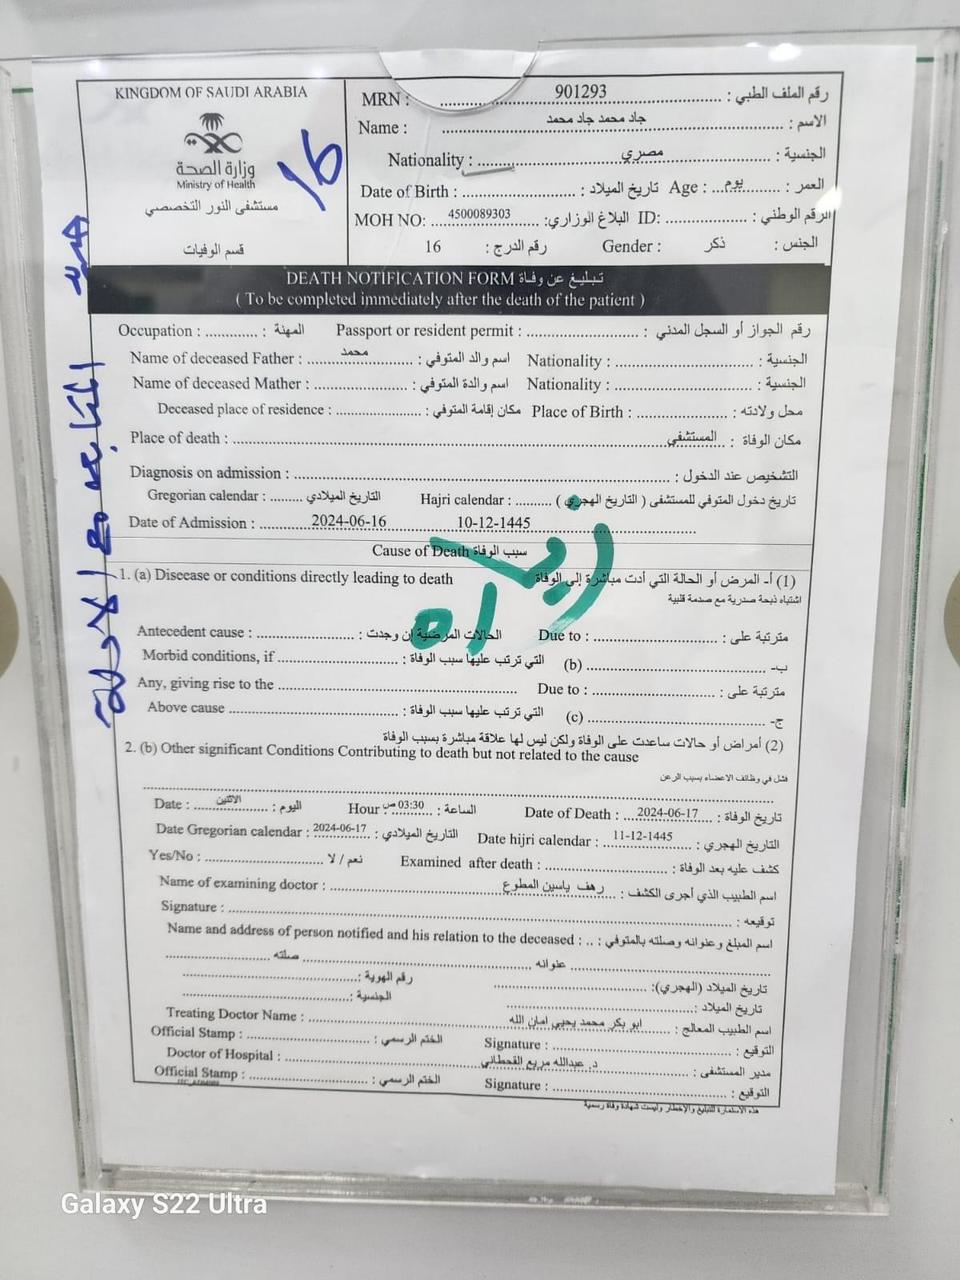 KINGDOM OF SAUDI ARABIA
وزارة الصحة
Ministry of Health
مستشفى النور التخصصي
قسم الوفيات
16
MRN : 901293 رقم الملف الطبي :
Name : جاد محمد جاد محمد الاسم :
Nationality : مصري الجنسية :
Date of Birth : تاريخ الميلاد : Age : يوم العمر :
MOH NO: 4500089303 البلاغ الوزاري: ID: الرقم الوطني :
16 رقم الدرج : Gender : ذكر الجنس :
DEATH NOTIFICATION FORM تبليغ عن وفاة
( To be completed immediately after the death of the patient )
Occupation : المهنة : Passport or resident permit : رقم الجواز أو السجل المدني :
Name of deceased Father : محمد اسم والد المتوفي : Nationality : الجنسية :
Name of deceased Mather : اسم والدة المتوفي : Nationality : الجنسية :
Deceased place of residence : مكان إقامة المتوفي : Place of Birth : محل ولادته :
Place of death : المستشفي مكان الوفاة :
Diagnosis on admission : التشخيص عند الدخول :
Gregorian calendar : التاريخ الميلادي Hajri calendar : تاريخ دخول المتوفي للمستشفى ( التاريخ الهجري )
Date of Admission : 2024-06-16 10-12-1445
Cause of Death سبب الوفاة
1. (a) Disease or conditions directly leading to death (1) أ- المرض أو الحالة التي أدت مباشرة إلى الوفاة
اشتباه ذبحة صدرية مع صدمة قلبية
Antecedent cause : الحالات المرضية إن وجدت : Due to : مترتبة على :
Morbid conditions, if التي ترتب عليها سبب الوفاة : (b) ب-
Any, giving rise to the Due to : مترتبة على :
Above cause التي ترتب عليها سبب الوفاة : (c) ج-
(2) أمراض أو حالات ساعدت على الوفاة ولكن ليس لها علاقة مباشرة بسبب الوفاة
2. (b) Other significant Conditions Contributing to death but not related to the cause
فشل في وظائف الاعضاء بسبب الرعن
Date : الاثنين اليوم : Hour 03:30 ص الساعة : Date of Death : 2024-06-17 تاريخ الوفاة :
Date Gregorian calendar : 2024-06-17 التاريخ الميلادي : Date hijri calendar : 11-12-1445 التاريخ الهجري :
Yes/No : نعم / لا Examined after death : كشف عليه بعد الوفاة :
Name of examining doctor : رهف ياسين المطوع اسم الطبيب الذي أجرى الكشف :
Signature : توقيعه :
Name and address of person notified and his relation to the deceased : اسم المبلغ وعنوانه وصلته بالمتوفي :
صلته عنوانه
رقم الهوية : تاريخ الميلاد (الهجري):
الجنسية : تاريخ الميلاد :
Treating Doctor Name : ابو بكر محمد يحيي امان الله اسم الطبيب المعالج :
Official Stamp : الختم الرسمي : Signature : التوقيع :
Doctor of Hospital : د. عبدالله مريع القحطاني مدير المستشفى :
Official Stamp : الختم الرسمي : Signature : التوقيع :
هذه الاستمارة للتبليغ والإخطار وليست شهادة وفاة رسمية
Galaxy S22 Ultra